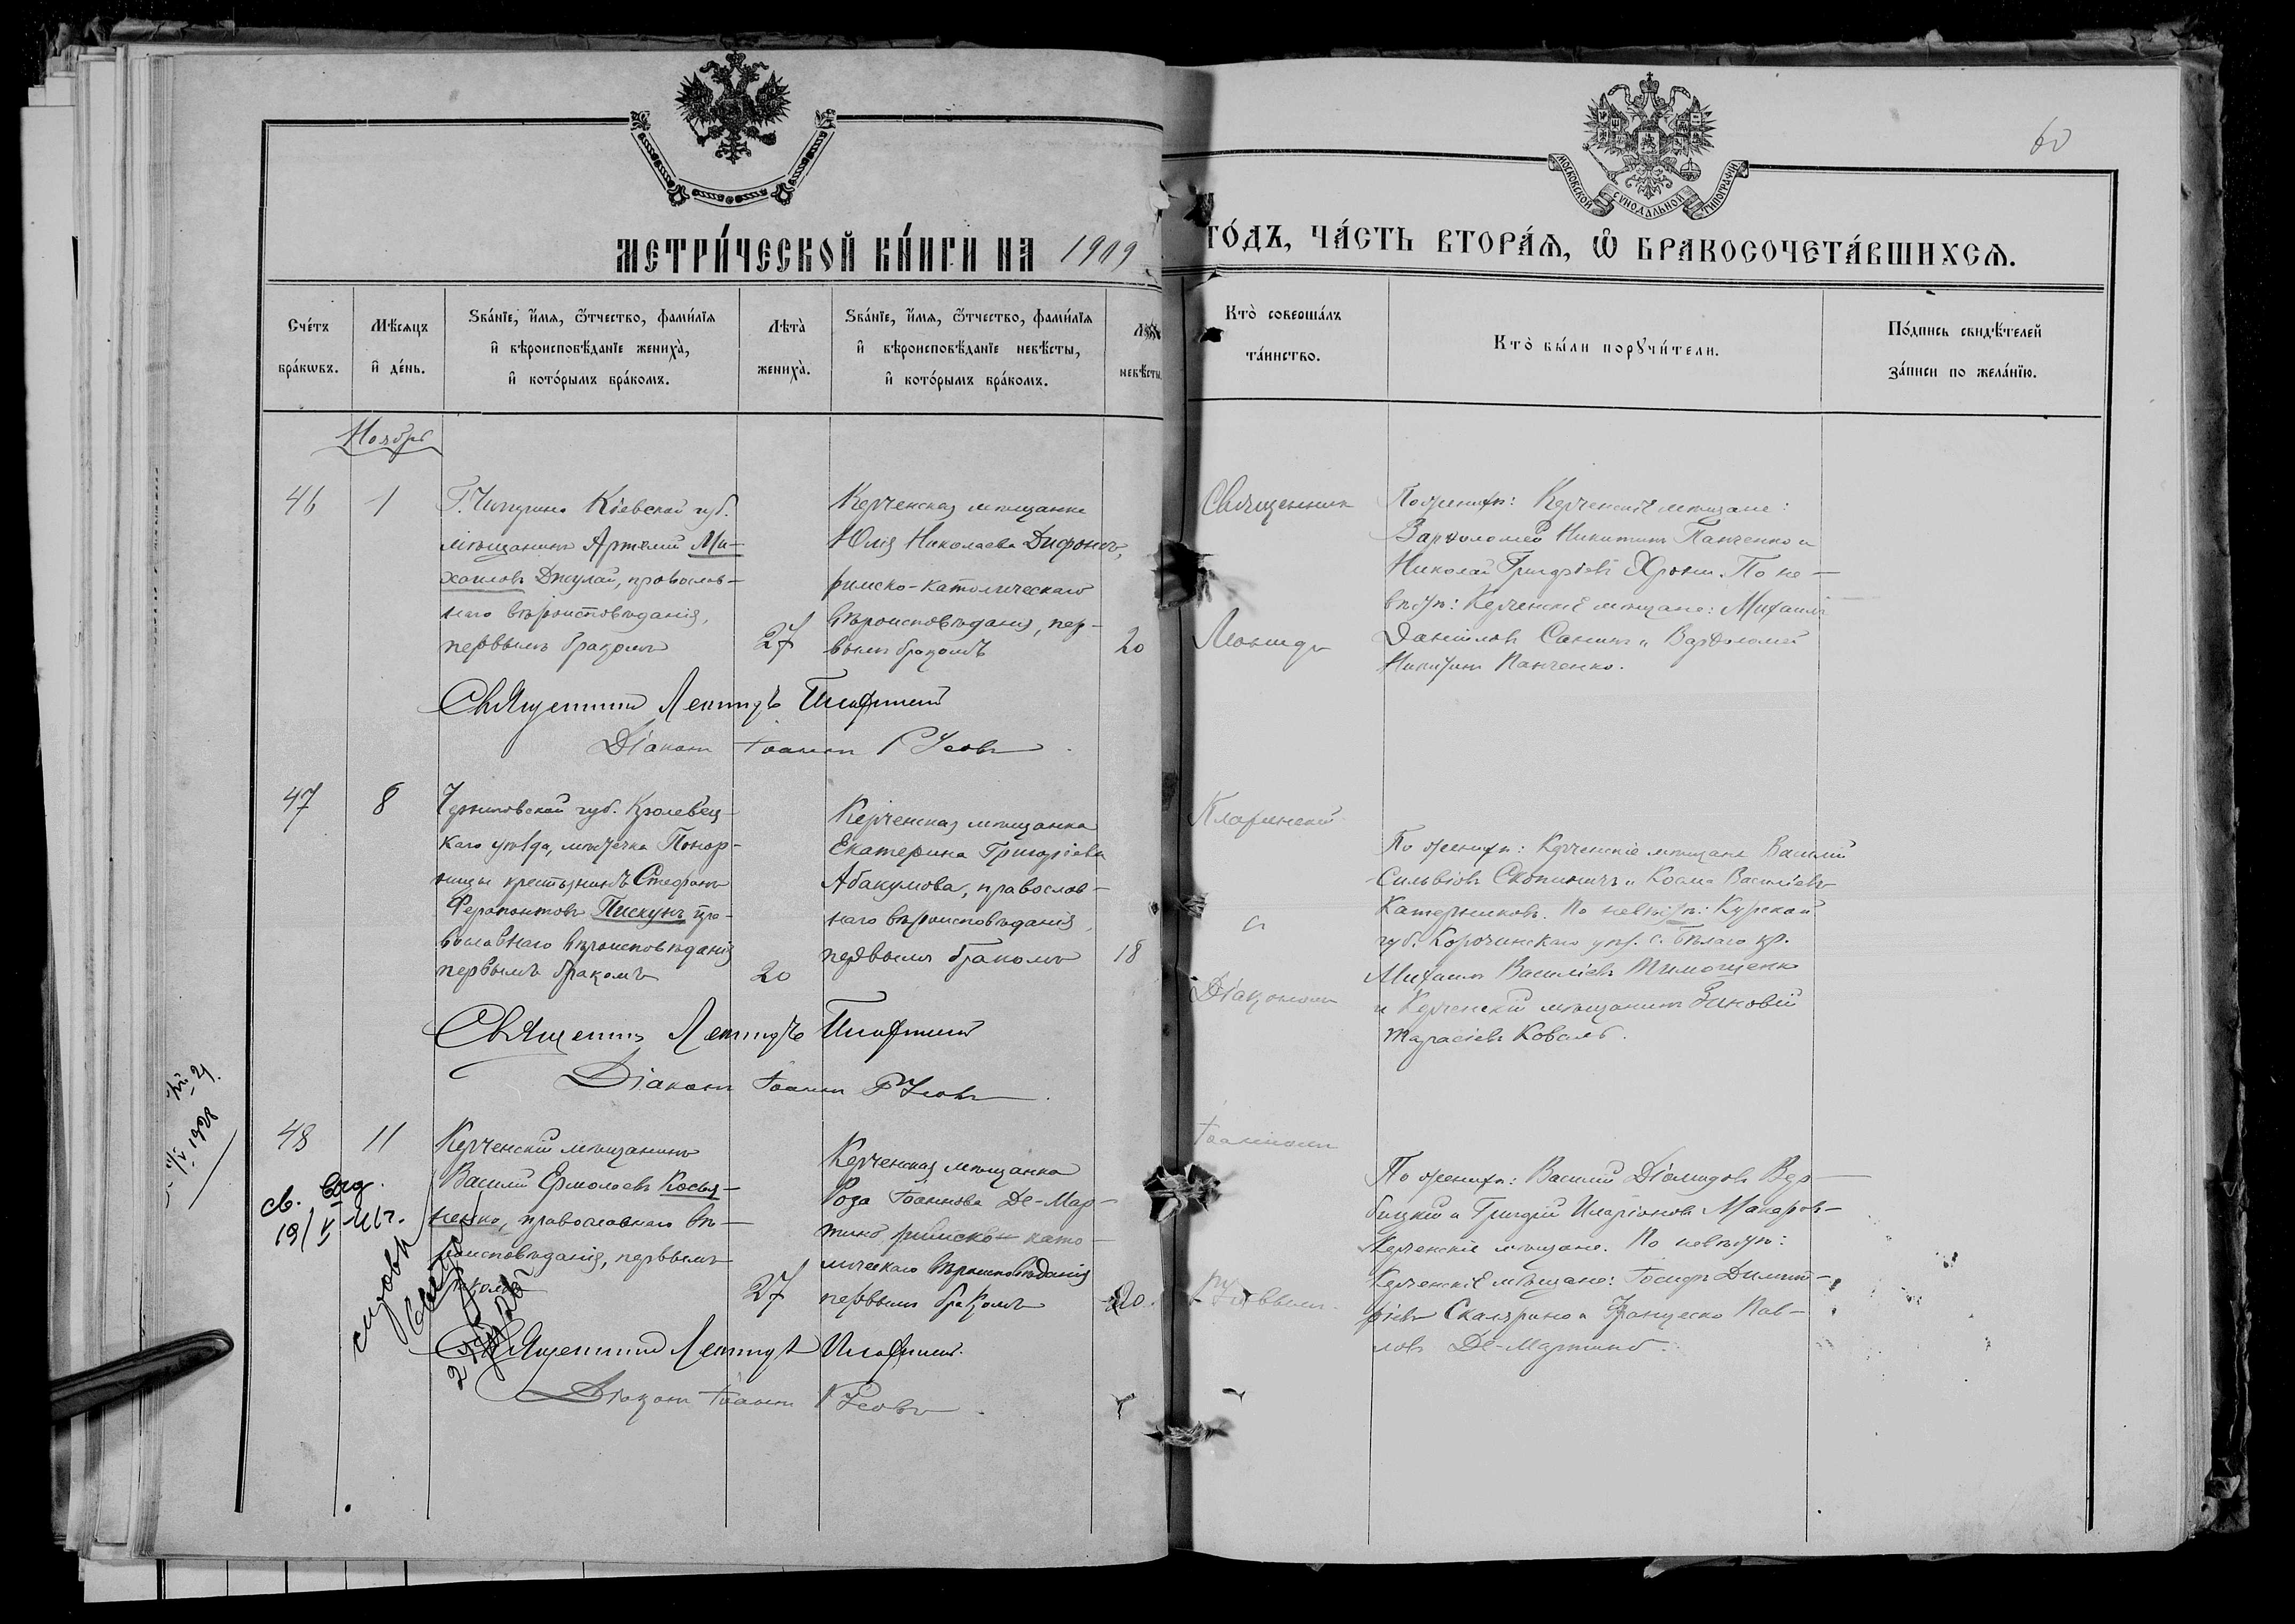 60
МОСКОВСКОЙ СѴНОДАЛЬНОЙ ТИПОГРАФІИ
МЕТРИ́ЧЕСКОЙ КНИ́ГИ НА 1909
ГО́ДЪ, ЧА́СТЬ ВТОРА́Ѧ, Ѽ БРАКОСОЧЕТА́ВШИХСѦ.
Сче́тъ бра́кѡвъ.
Мѣ́сѧцъ и҆ де́нь.
Ѕва́нїе, и҆́мѧ, ѻ҆́тчество, фами́лїѧ
и҆ вѣроисповѣ́данїе жениха̀,
и҆ кото́рымъ бра́комъ.
Лѣта̀ жениха̀.
Ѕва́нїе, и҆́мѧ, ѻ҆́тчество, фами́лїѧ
и҆ вѣроисповѣ́данїе невѣ́сты,
и҆ кото́рымъ бра́комъ.
невѣ́сты
Кто̀ соверша́лъ
та́инство.
Кто̀ бы́ли порꙋчи́тели.
По́дпись свидѣ́телей
за́писи по жела́нїю.
Ноябрь
46
1
Г. Чигирина Кіевской губ.
мѣщанинъ Артемій Ми-
хаиловъ Джулай, православ-
наго вѣроисповѣданія,
первымъ бракомъ
27
Керченская мѣщанка
Юлія Николаева Дифонсъ,
римско-католическаго
вѣроисповѣданія, пер-
вымъ бракомъ
20
Священник
Леонидъ
По женихѣ: Керченскіе мѣщане:
Варѳоломей Никитинъ Панченко и
Николай Григоріевъ Хрони. По не-
вѣстѣ: Керченскіе мѣщане: Михаилъ
Даниловъ Санинъ и Варѳоломей
Никитинъ Панченко.
Священникъ Леонидъ
Діаконъ Іоаннъ Русовъ
47
8
Черниговской губ. Кролевец-
каго уѣзда, мѣстечка Понор-
ницы крестьянинъ Стефанъ
Ферапонтовъ Пискунъ пра-
вославнаго вѣроисповѣданія
первымъ бракомъ
20
Керченская мѣщанка
Екатерина Григоріева
Абакумова, православ-
наго вѣроисповѣданія,
первымъ бракомъ
18
с
Діакономъ
По женихѣ: Керченскіе мѣщане Василій
Сильвіовъ Скопиничъ и Косма Василіевъ
Катерниковъ. По невѣстѣ: Курской
губ. Корочинскаго уѣз. с. Бѣлаго кр.
Михаилъ Василіевъ Тимощенко
и Керченскій мѣщанинъ Зиновій
Тарасіевъ Коваль.
Священникъ Леонидъ
Діаконъ Іоаннъ Русовъ
48
11
Керченскій мѣщанинъ
Василій Ермолаевъ Косья-
ненко, православнаго вѣ-
роисповѣданія, первымъ
бракомъ
27
Керченская мѣщанка
Роза Іоаннова Де-Мар-
тино, римско-като-
лическаго вѣроисповѣданія
первымъ бракомъ
20
Іоанномъ
Русовымъ.
По женихѣ: Василій Діомидовъ Вер-
бицкій и Григорій Иларіоновъ Макаров-
Керченскіе мѣщане. По невѣстѣ:
Керченскіе мѣщане: Іосифъ Димит-
ріевъ Скалярино и Франческо Пав-
ловъ Де-Мартино.
Священникъ Леонидъ
Діаконъ Іоаннъ Русовъ
св. выд.
19/V
1928